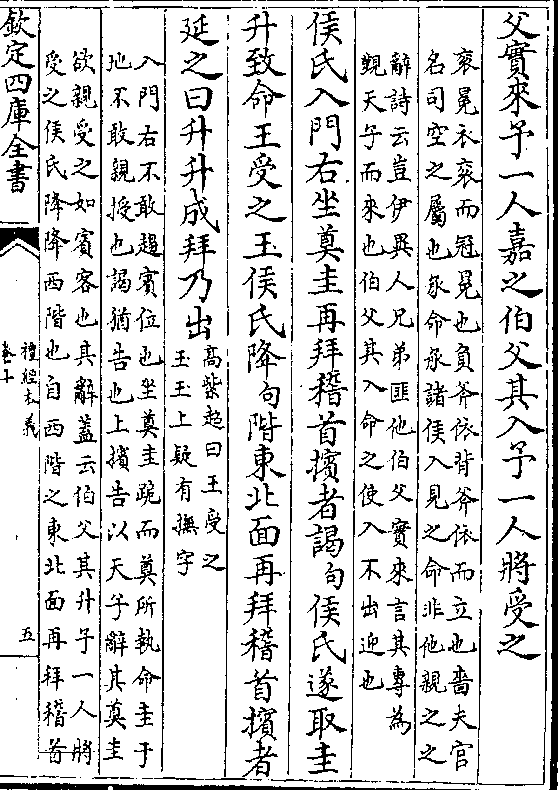 父實來予一人嘉之伯父其入予一人將受之
衮冕衣衮而冠冕也負斧依背斧依而立也嗇夫官
名司空之屬也承命承諸侯入見之命非他親之之
辭詩云豈伊異人兄弟匪他伯父實來言其專為
覲天子而來也伯父其入命之使入不出迎也
侯氏入門右坐奠圭再拜稽首擯者謁句侯氏遂取圭
升致命王受之玉侯氏降句階東北面再拜稽首擯者
延之曰升升成拜乃出
高紫超曰王受之
玉玉上疑有撫字
入門右不敢趨賓位也坐奠圭跪而奠所執命圭于
地不敢親授也謁猶告也上擯告以天子辭其奠圭
欲親受之如賓客也其辭蓋云伯父其升予一人將
受之侯氏降降西階也自西階之東北面再拜稽首
欽定四庫全書
禮經本義
卷十
五